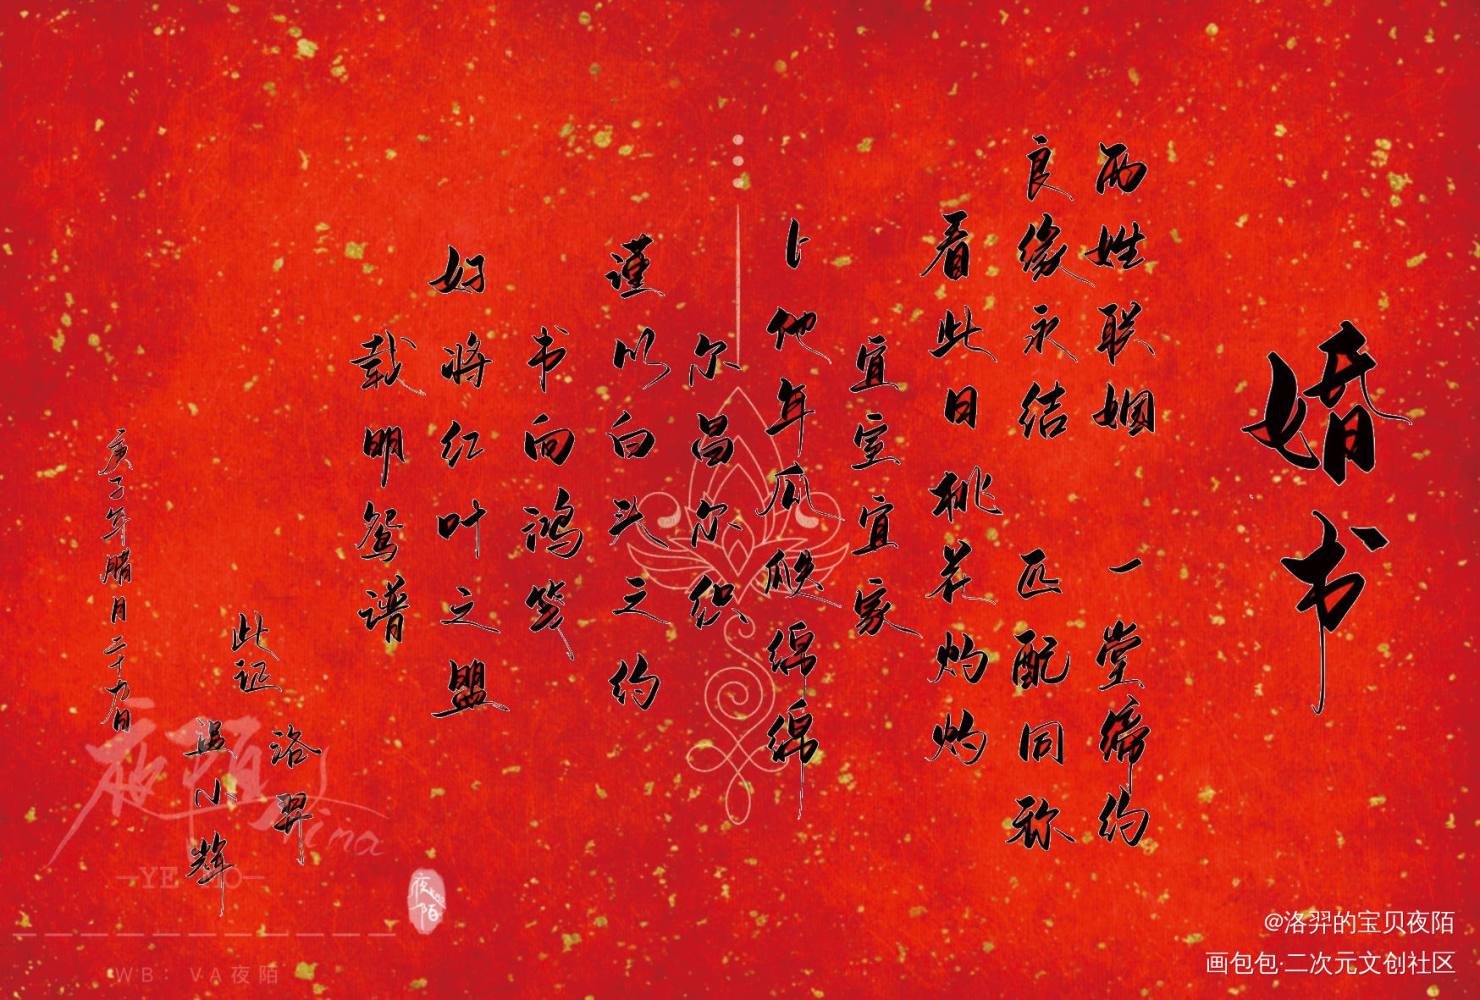 婚书
两姓联姻 一堂缔约
良缘永结 匹配同称
看此日桃花灼灼
宜室宜家
卜他年瓜瓞绵绵
尔昌尔织
谨以白头之约
书向鸿笺
好将红叶之盟
载明鸳谱
此证
洛羿
温小辉
庚子年腊月二十九日
夜陌
夜陌
WB：VA夜陌
@洛羿的宝贝夜陌
画包包·二次元文创社区